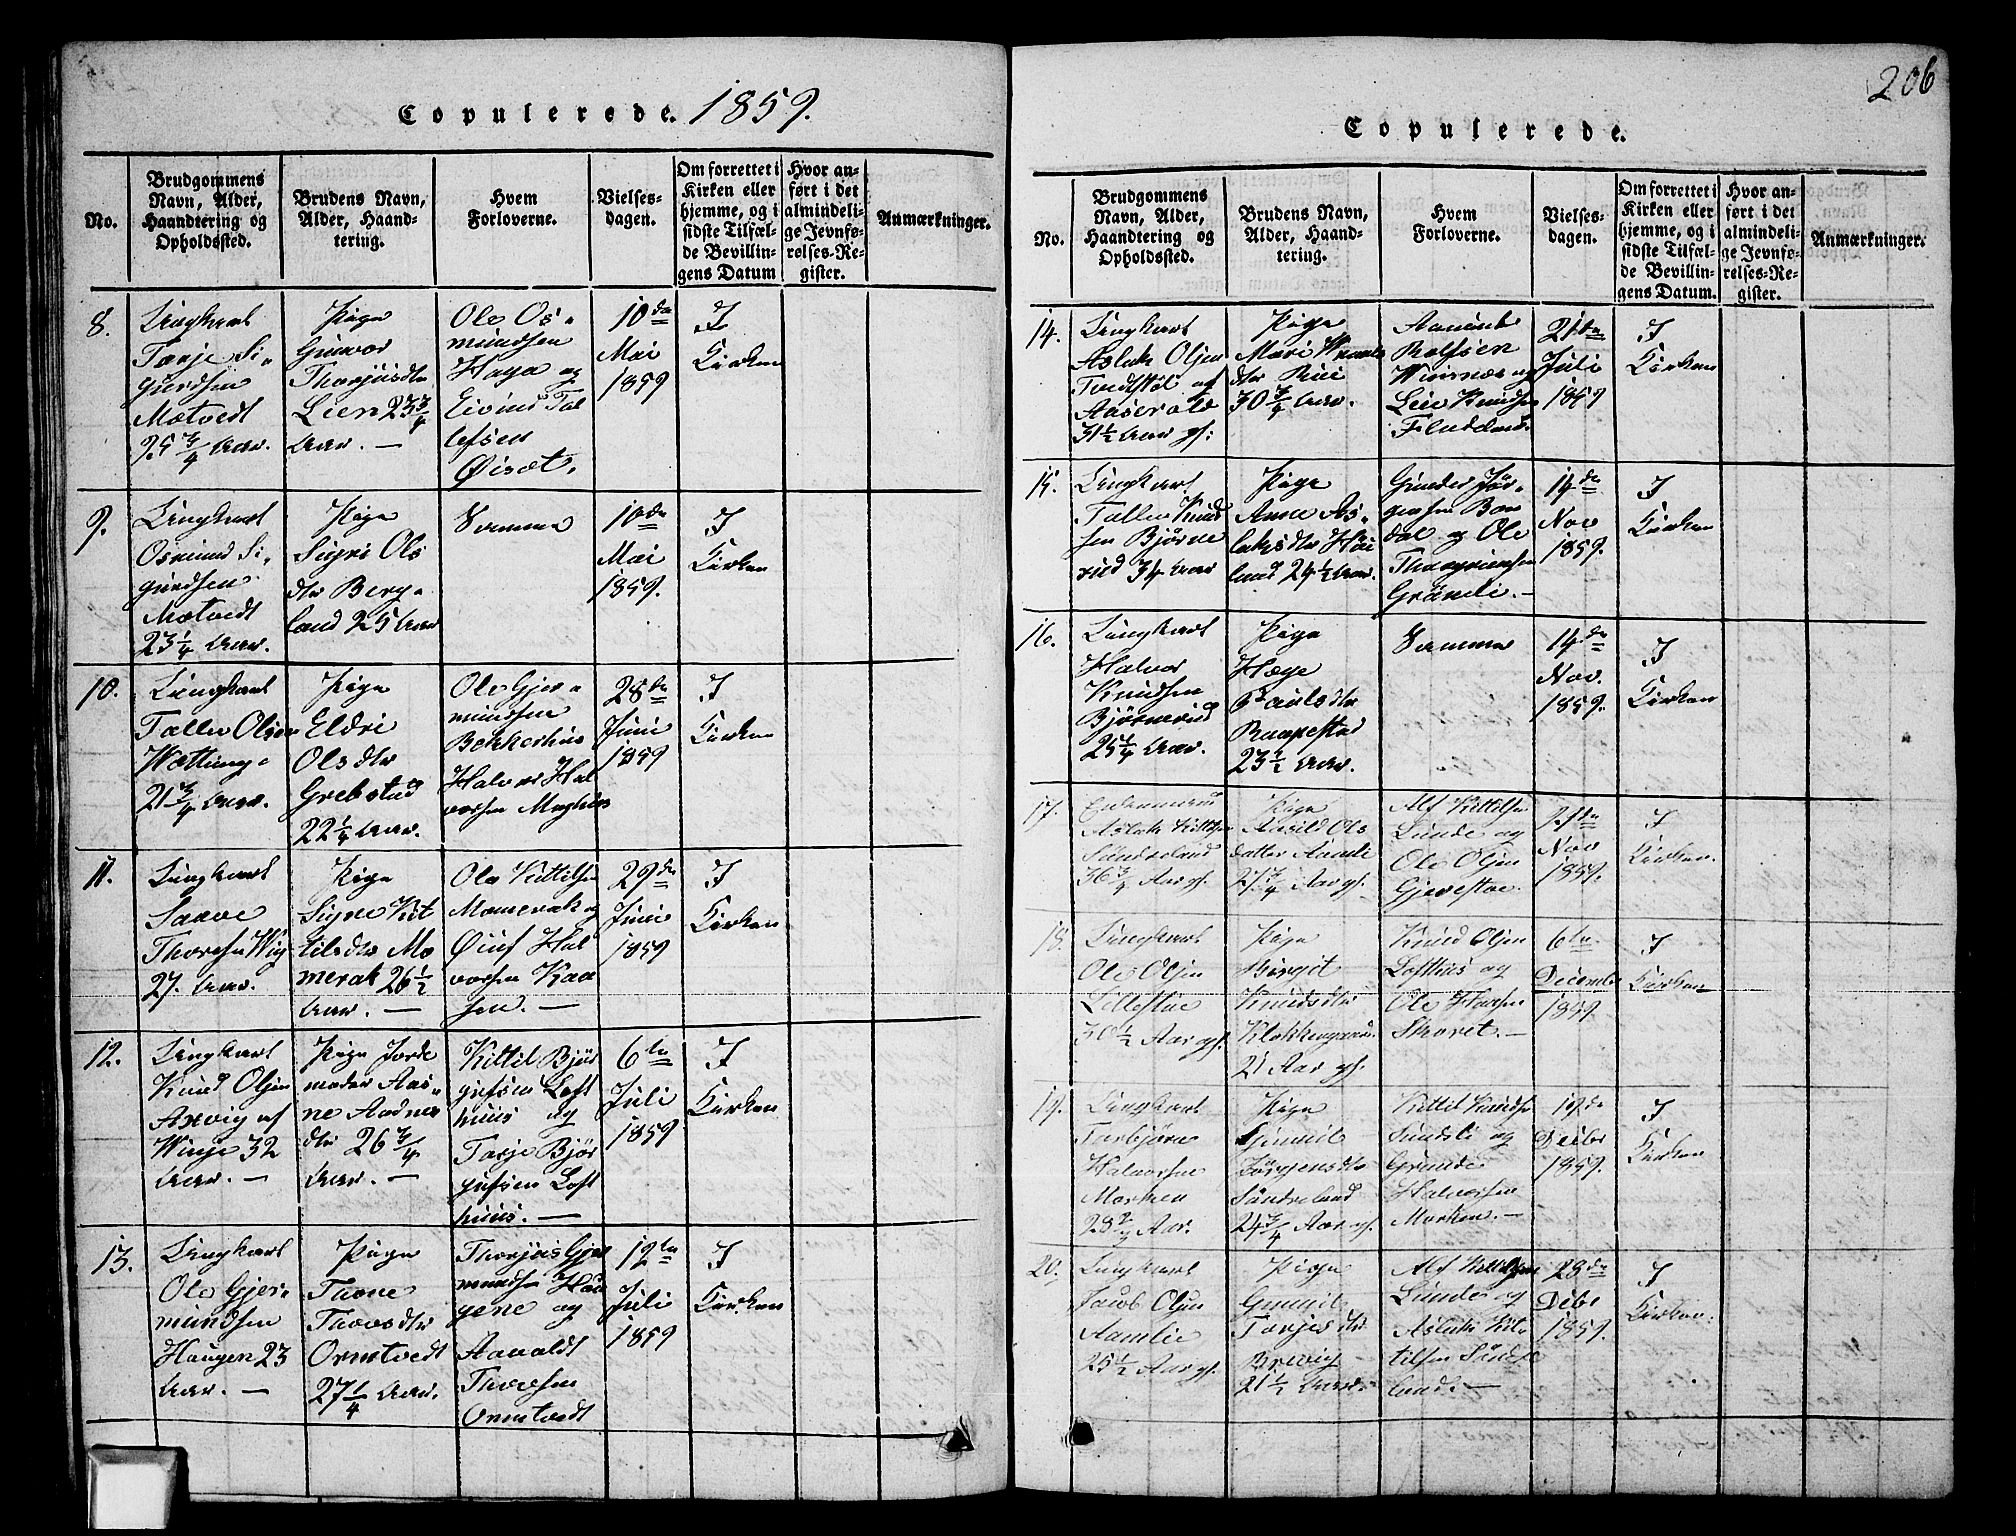 Copulerede. 1859.
No.
Brudgommens
Navn, Alder,
Haandtering og
Opholdssted.
Brudens Navn,
Alder, Haand-
tering.
Hvem
Forloverne.
Vielses-
dagen.
Om forrettet i
Kirken eller
hjemme, og i
sidste Tilfæl-
de Bevillin-
gens Datum
Hvor an-
ført i det
almindeli-
ge Jevnfø-
relses-Re-
gister.
Anmærkninger.
8.
Ungkarl
Tarje Si-
gurdsen
Mætvedt
25 3/4 Aar.
Pige
Gunvor
Thorjusdtr
Lien 23 3/4
Aar. —
Ole Os-
mundsen
Haga og
Eivind Tal
lefsen
Øisæt.
10de
Mai
1859
I
Kirken
9.
Ungkarl
Osmund Si-
gurdsen
Mætvedt
23 1/4 Aar.
Pige
Sigri Ols
dtr Berg-
land 25 Aar
Samme
10de
Mai
1859.
I
Kirken
10.
Ungkarl
Tallev Olsen
Wætting-
21 3/4 Aar.
Pige
Eldri
Olsdtr
Grebstad
22 1/4 Aar.
Ole Gjer-
mundsen
Bekkerhus
Halvor Hal
vorsen
28de
Juni
1859
I
Kirken
11.
Ungkarl
Saave
Thorsen Wig
27. Aar.
Pige
Signe Kit
tilsdtr Mo
merak 26 1/2
Aar. —
Ole Kittilsen
Momerak og
Øiuf Hal
vorsen Kaa
sen. —
29de
Juni
1859
I
Kirken
12.
Ungkarl
Knud Olsen
Axvig af
Winje 32
Aar. —
Pige Jorde
moder Aas-
ne Aadne
dtr 26 3/4
Aar. —
Kittil Bjør
gufsen Loft
huus og
Tarje Bjør
gufsen Loft
huus. —
6te
Juli
1859
I
Kirken
13.
Ungkarl
Ole Gjer-
mundsen
Haugen 23
Aar. —
Pige
Thone
Thorsdtr
Ormtvedt
27 1/4 Aar.
Thorjus Gjer
mundsen Hau
gene og
Aavaldt
Thorsen
Ormtvedt
12te
Juli
1859
I
Kirken
206
Copulerede.
No.
Brudgommens
Navn, Alder,
Haandtering og
Opholdssted.
Brudens Navn,
Alder, Haand-
tering.
Hvem
Forloverne.
Vielses-
dagen.
Om forrettet i
Kirken eller
hjemme, og i
sidste Tilfæl-
de Bevillin-
gens Datum.
Hvor an-
ført i det
almindeli-
ge Jevnfø-
relses-Re-
gister.
Anmærkninger.
14.
Ungkarl
Aslak Olsen
af
Aaserald
31 1/2 Aar gl.
Pige
Mari
dtr
30 3/4 Aar.
Aanund
Rolfsen
og
Leiv Knudsen
21de
Juli
1859
I
Kirken
15.
Ungkarl
Tallev Knud
sen Bjørne
rud 34 Aar
Pige
Anne As-
laksdtr Høi
land 24 1/2 Aar.
Gunder Jør-
gensen Bon
dal og Ole
14de
Nov
1859.
I
Kirken
16.
Ungkarl
Halvor
Knudsen
Bjørnerud
25 1/4 Aar.
Pige
Hæge
Paulsdtr
Raapestad
23 1/2 Aar.
Samme
14de
Nov.
1859.
I
Kirken
17.
Enkemand
Aslak Kittilsen
Sundreland
36 3/4 Aar gl.
Pige
Aasild Ols
datter Aamli
27 3/4 Aar gl.
Alf Kittilsen
Lunde og
Ole Olsen
Gjevestøe.
21de
Nov
1859.
I
Kirken.
18.
Ungkarl
Ole Olsen
Lillestøe
30 1/2 Aar gl.
Pige
Birgit
Knudsdtr
21 Aar gl.
Knud Olsen
Lofthus og
Ole
Skoret. —
6te
December
1859.
I
Kirken
19.
Ungkarl
Torbjørn
Halvorsen
Morken
Aar.
Pige
Gunnil
Jørgensdtr
Sundreland
24 3/4 Aar gl.
Kittil Knudsen
Sundsli og
Gunde
Halvorsen
Morken. —
19de
Decbr
1859.
I
Kirken
20.
Ungkarl
Jacob Olsen
Aamlie
25 1/2 Aar gl.
Pige
Gunnil
Tarjesdtr
Brevig
21 1/2 Aar
Alf Kittilsen
Lunde og
Aslak Kit
tilsen Sundre
land. —
28de
Decbr
1859.
I
Kirken.